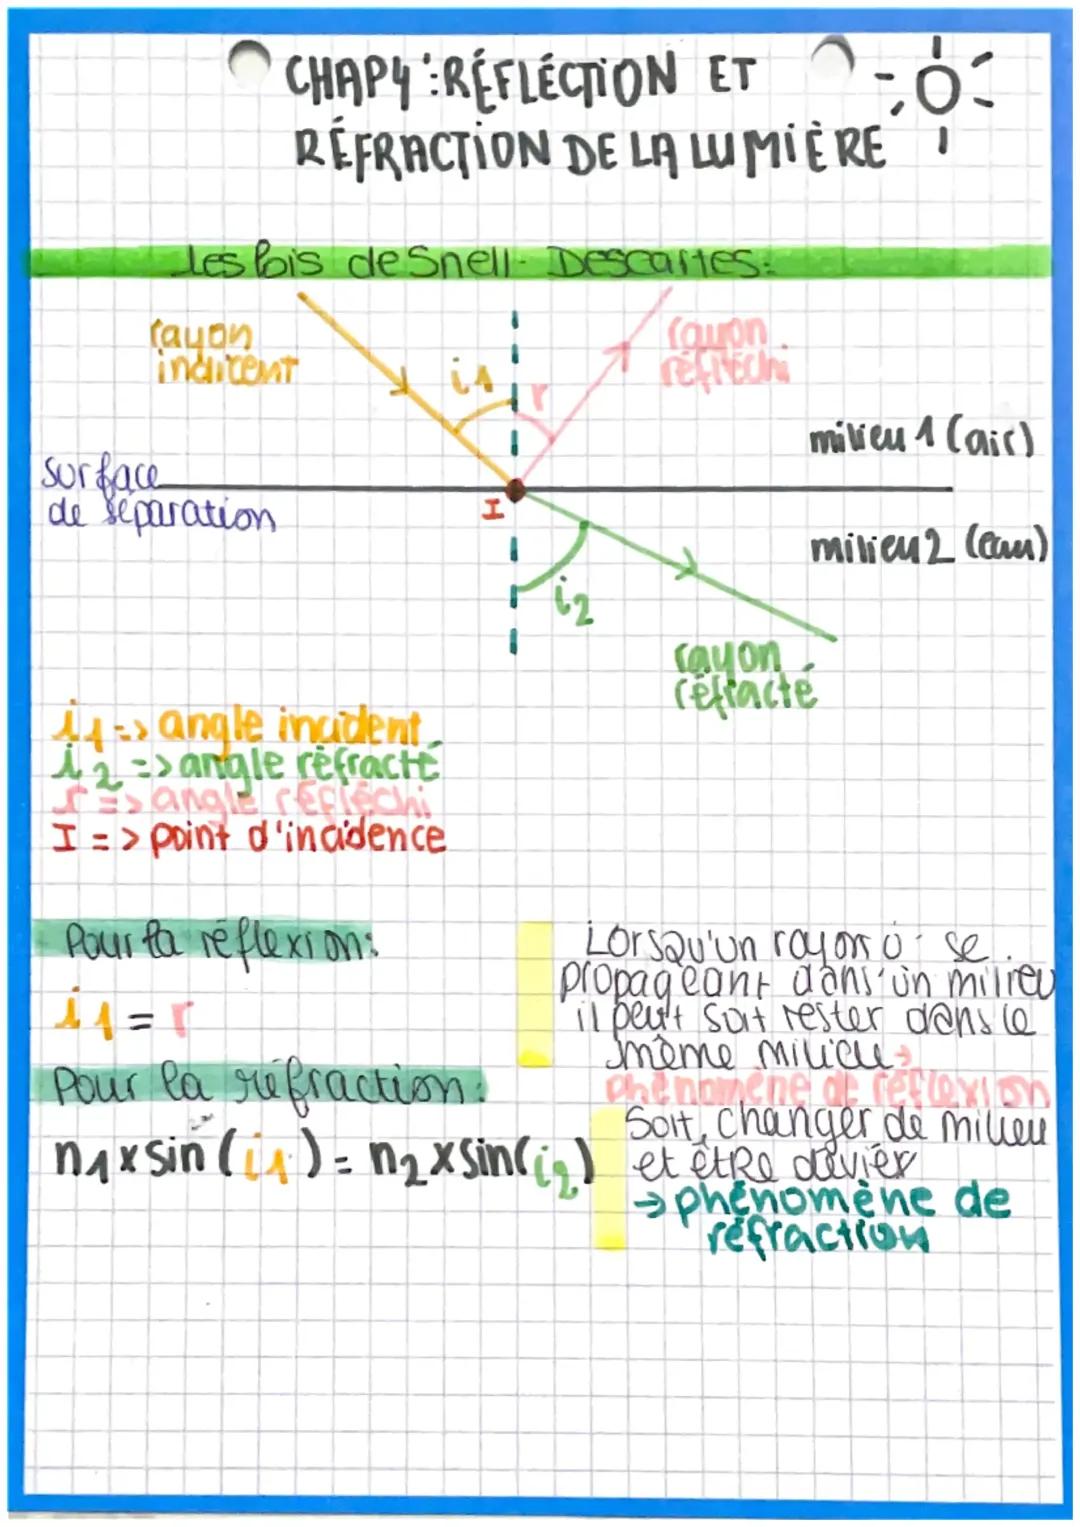 CHAP4: RÉFLÉCTION ET
RÉFRACTION DE LA LUMIÈRE
Les lois de Snell- Descartes:
rayon
indicent
i1
r
rayon
réfléchi
milieu 1 (air)
surface
de séparation
I
milieu 2 (eau)
i2
rayon
réfracté
i1 => angle incident
i2 => angle réfracté
r => angle réfléchi
I => point d'incidence
Pour la réflexion:
i1 = r
Pour la réfraction:
n1 x sin (i1) = n2 x sin(i2)
Lorsqu'un rayon se
propageant dans un milieu
il peut soit rester dans le
même milieu →
phénomène de réflexion
Soit, changer de milieu
et être dévier
→ phénomène de
réfraction